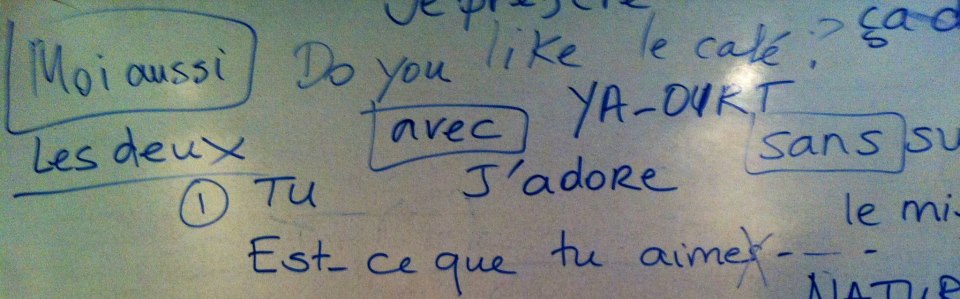 Je préfère
Moi aussi Do you like le café? ça
Les deux avec YA-OURT sans su
① TU J'adore
le mi-
Est-ce que tu aimes----
NATUR